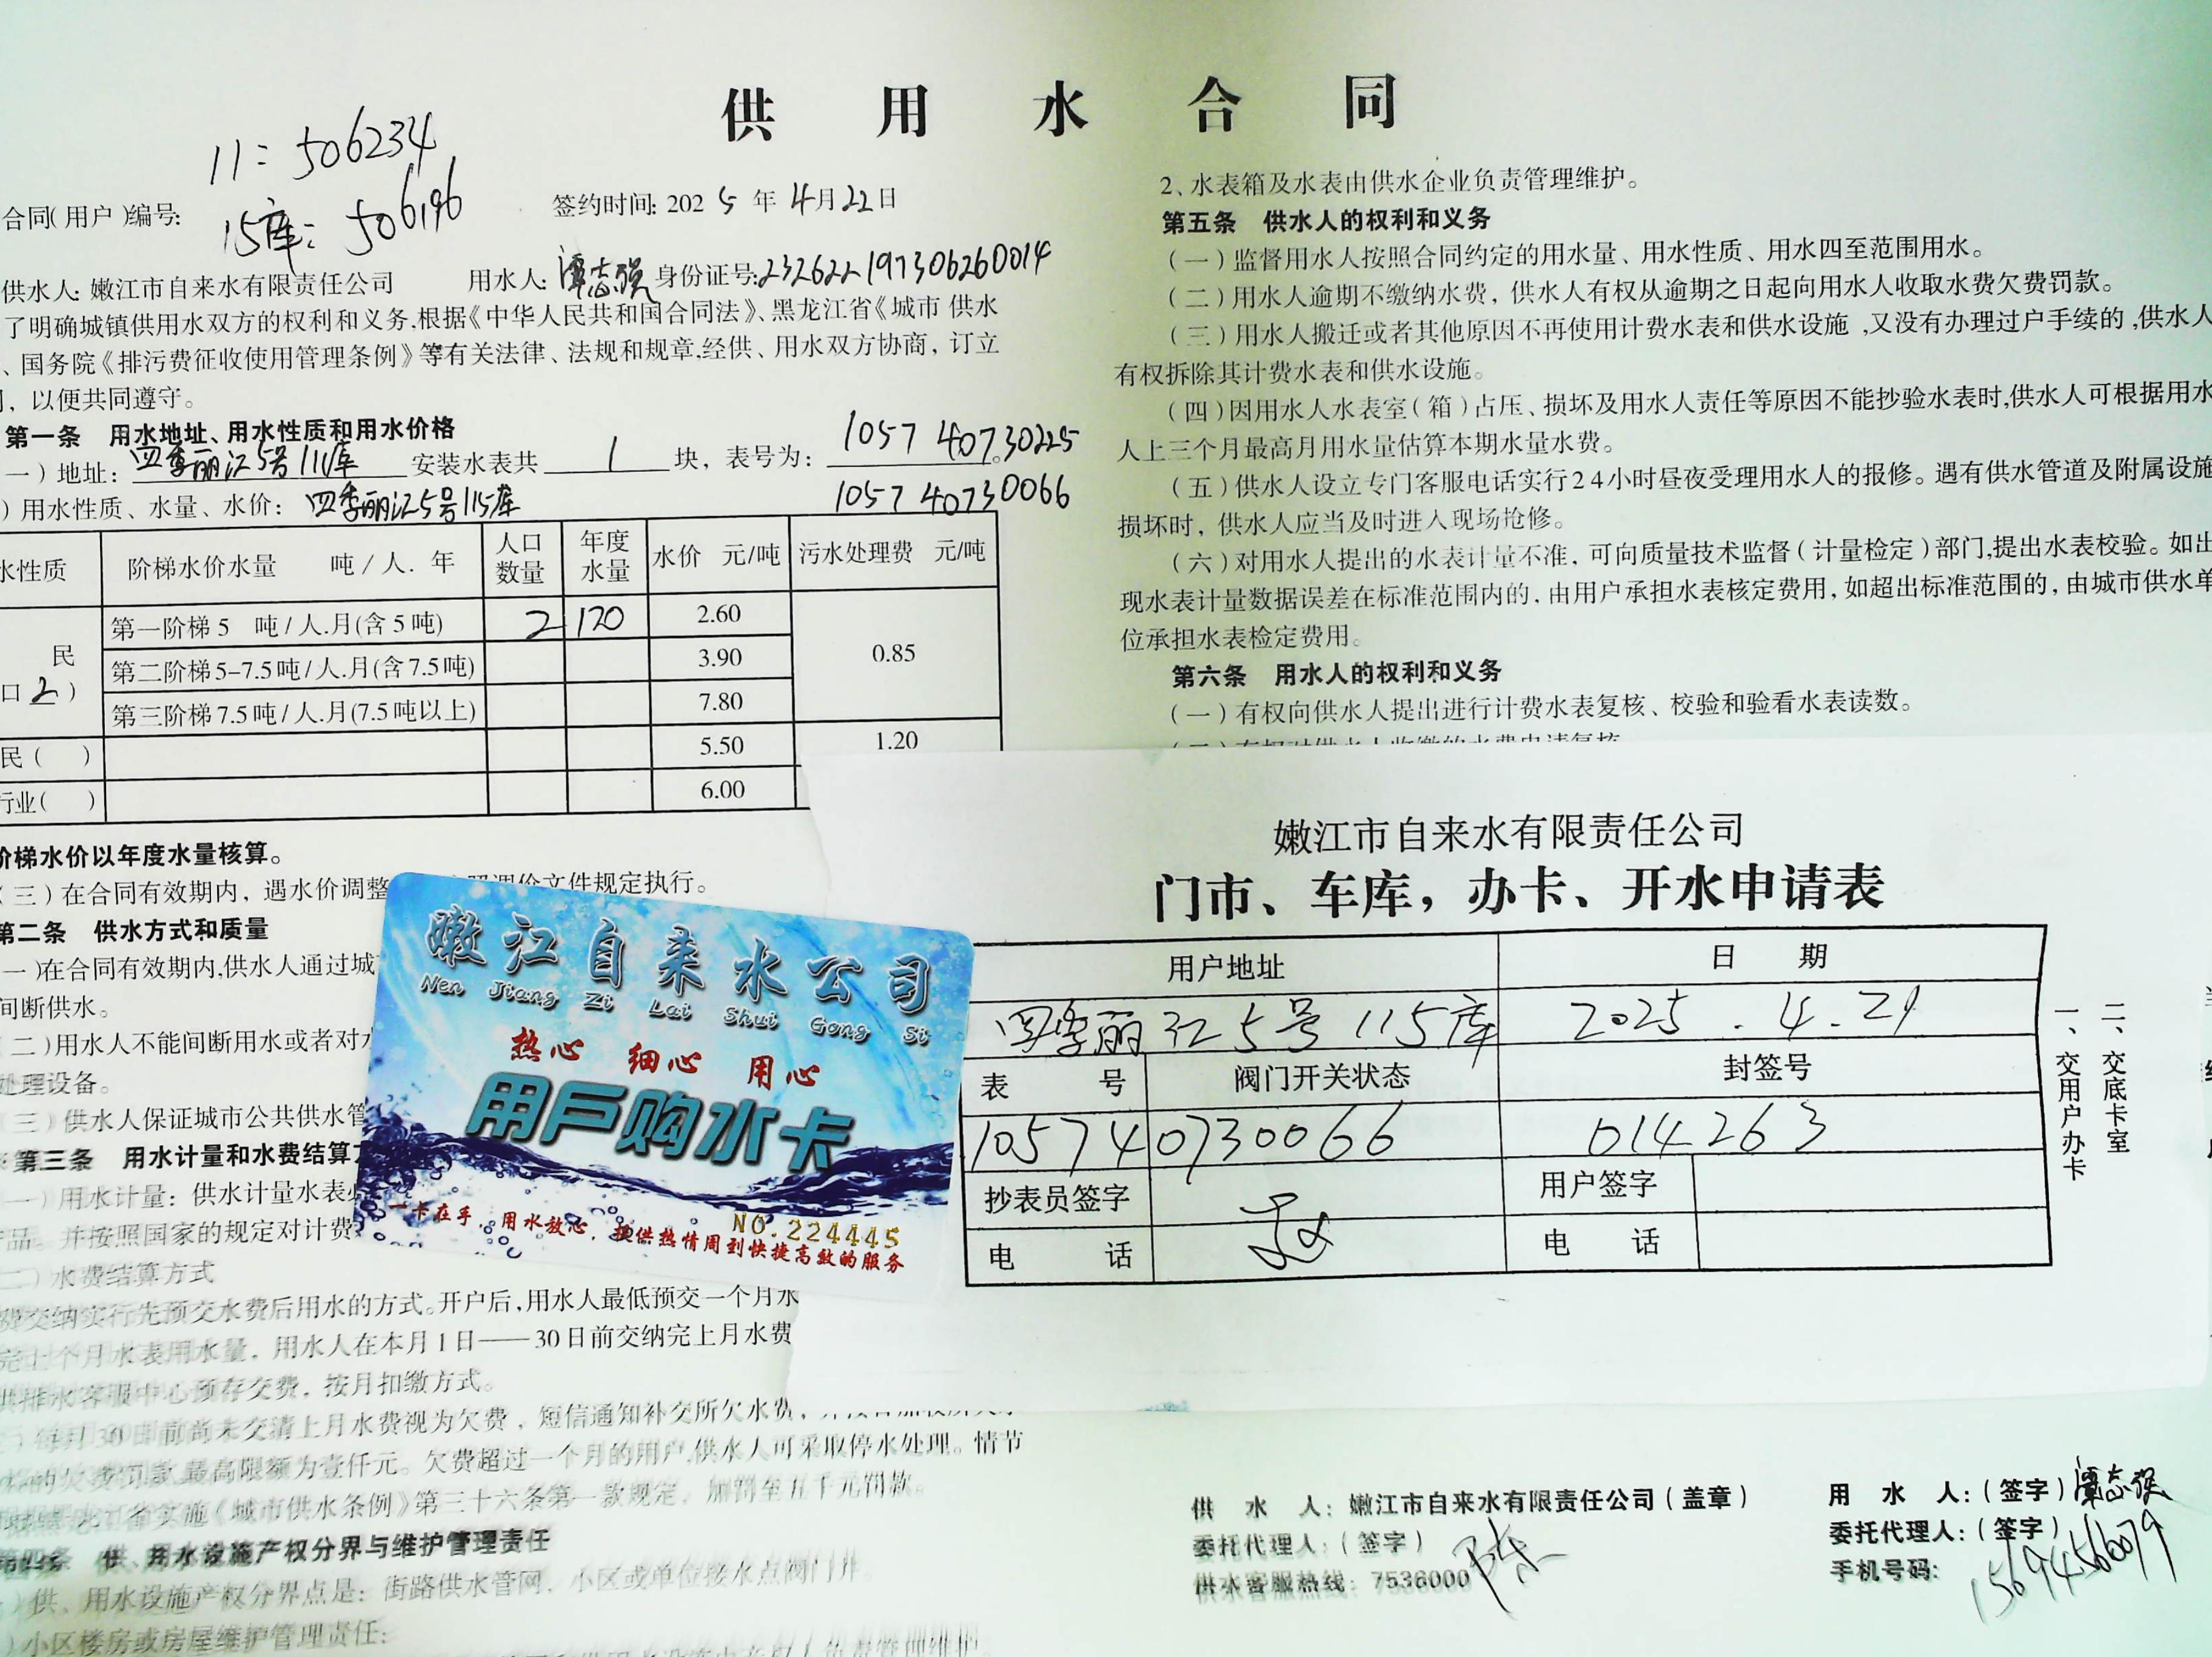 供 用 水 合 同
11: 506234
15库: 506196
合同(用户)编号:
签约时间: 2025 年 4月22日
供水人: 嫩江市自来水有限责任公司 用水人: 谭志强 身份证号:232622197306260014
了明确城镇供用水双方的权利和义务,根据《中华人民共和国合同法》、黑龙江省《城市 供水
、国务院《排污费征收使用管理条例》等有关法律、法规和规章,经供、用水双方协商,订立
,以便共同遵守。
第一条 用水地址、用水性质和用水价格
一)地址: 四季丽江5号111库 安装水表共 1 块,表号为: 105740730225
)用水性质、水量、水价: 四季丽江5号115库 105740730066
水性质 阶梯水价水量 吨/人.年 人口数量 年度水量 水价 元/吨 污水处理费 元/吨
民 第一阶梯 5 吨/人.月(含 5 吨) 2 120 2.60
第二阶梯 5-7.5吨/人.月(含7.5吨) 3.90 0.85
口 2 ) 第三阶梯 7.5吨/人.月(7.5吨以上) 7.80
民( ) 5.50 1.20
行业( ) 6.00
阶梯水价以年度水量核算。
(三)在合同有效期内,遇水价调整 调价文件规定执行。
第二条 供水方式和质量
一)在合同有效期内,供水人通过城
间断供水。
(二)用水人不能间断用水或者对水
处理设备。
(三)供水人保证城市公共供水管
第三条 用水计量和水费结算方
一)用水计量: 供水计量水表必
产品。并按照国家的规定对计费
二)水费结算方式
费交纳实行先预交水费后用水的方式。开户后,用水人最低预交一个月水
完上个月水表用水量,用水人在本月1日——30日前交纳完上月水费
供排水客服中心预存交费,按月扣缴方式。
)每月30日前尚未交清上月水费视为欠费,短信通知补交所欠水费,
的欠费罚款,最高限额为壹仟元。欠费超过一个月的用户,供水人可采取停水处理。情节
江省实施《城市供水条例》第三十六条第一款规定,加罚至五千元罚款。
第四条 供、用水设施产权分界与维护管理责任
)供、用水设施产权分界点是: 街路供水管网,小区或单位接水点阀门井。
)小区楼房或房屋维护管理责任:
2、水表箱及水表由供水企业负责管理维护。
第五条 供水人的权利和义务
(一)监督用水人按照合同约定的用水量、用水性质、用水四至范围用水。
(二)用水人逾期不缴纳水费,供水人有权从逾期之日起向用水人收取水费欠费罚款。
(三)用水人搬迁或者其他原因不再使用计费水表和供水设施,又没有办理过户手续的,供水人
有权拆除其计费水表和供水设施。
(四)因用水人水表室(箱)占压、损坏及用水人责任等原因不能抄验水表时,供水人可根据用水
人上三个月最高月用水量估算本期水量水费。
(五)供水人设立专门客服电话实行24小时昼夜受理用水人的报修。遇有供水管道及附属设施
损坏时,供水人应当及时进入现场抢修。
(六)对用水人提出的水表计量不准,可向质量技术监督(计量检定)部门,提出水表校验。如出
现水表计量数据误差在标准范围内的,由用户承担水表核定费用,如超出标准范围的,由城市供水单
位承担水表检定费用。
第六条 用水人的权利和义务
(一)有权向供水人提出进行计费水表复核、校验和验看水表读数。
嫩江市自来水有限责任公司
门市、车库,办卡、开水申请表
用户地址 日 期
四季丽江5号 115库 2025.4.21
表 号 阀门开关状态 封签号
105740730066 014263
抄表员签字 用户签字
电 话 电 话
一、交用户办卡
二、交底卡室
嫩江自来水公司
Nen Jiang Zi Lai Shui Gong Si
热心 细心 用心
用户购水卡
NO.224445
一卡在手,用水放心,提供热情周到快捷高效的服务
供 水 人: 嫩江市自来水有限责任公司(盖章)
委托代理人:(签字)
供水客服热线: 7536000
用 水 人:(签字)谭志强
委托代理人:(签字)
手机号码: 15694566079